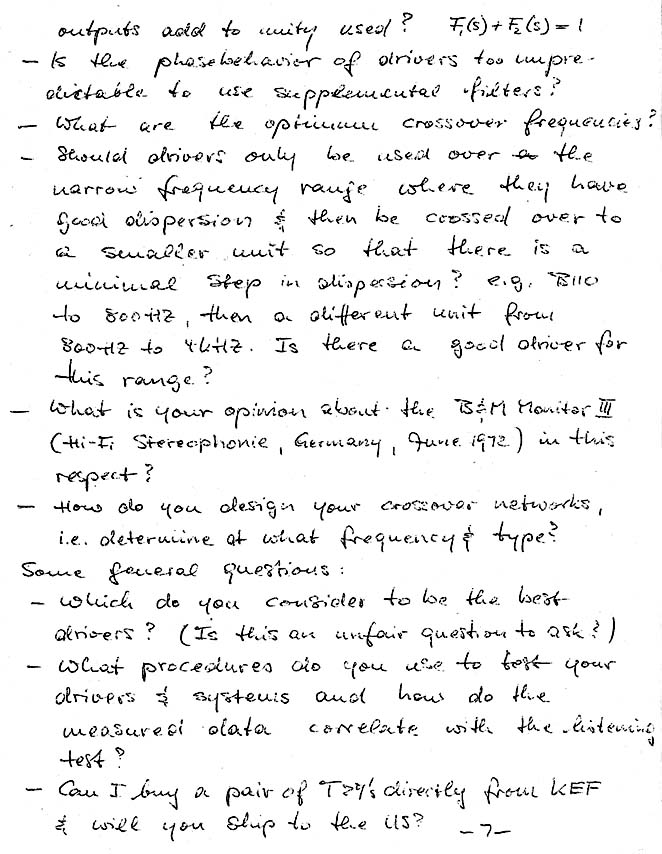 outputs add to unity used? F₁(s)+F₂(s)=1
- Is the phasebehavior of drivers too unpre-
dictable to use supplemental filters?
- What are the optimum crossover frequencies?
- Should drivers only be used over the
narrow frequency range where they have
good dispersion & then be crossed over to
a smaller unit so that there is a
minimal step in dispersion? e.g. B110
to 800Hz, then a different unit from
800Hz to 4kHz. Is there a good driver for
this range?
- What is your opinion about the B&M Monitor III
(Hi-Fi Stereophonie, Germany, June 1972) in this
respect?
- How do you design your crossover networks,
i.e. determine at what frequency & type?
Some general questions:
- Which do you consider to be the best
drivers? (Is this an unfair question to ask?)
- What procedures do you use to test your
drivers & systems and how do the
measured data correlate with the listening
test?
- Can I buy a pair of directly from KEF
& will you ship to the US? -7-